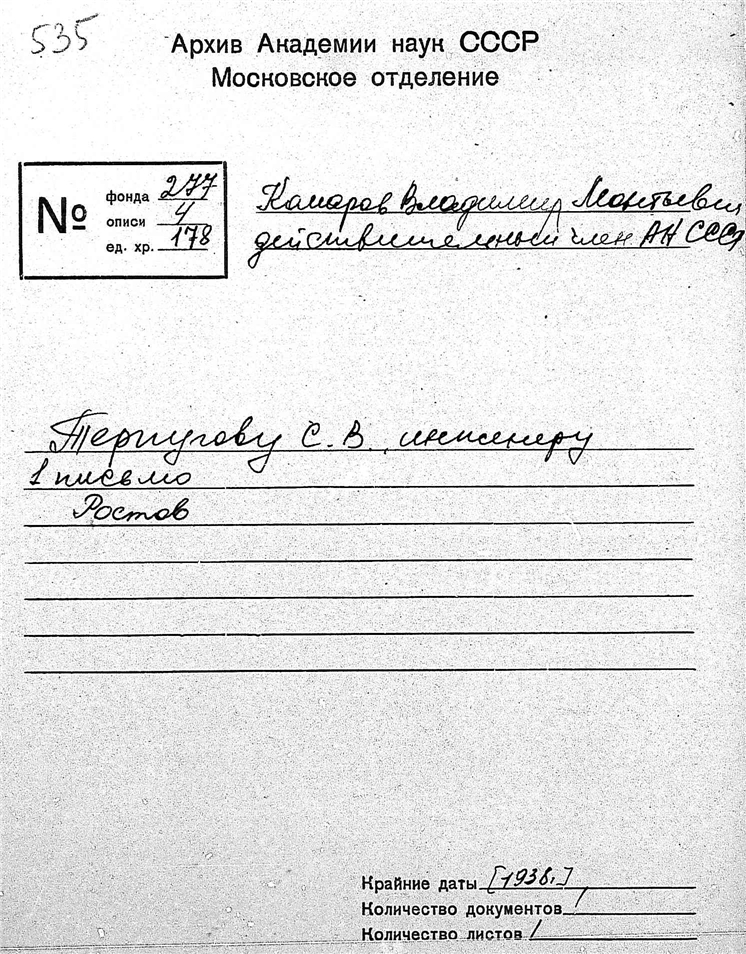 535
Архив Академии наук СССР
Московское отделение
№
фонда 277
описи 4
ед. хр. 178
Комаров Владимир Леонтьевич
действительный член АН СССР
Терпугову С. В., инженеру
1 письмо
Ростов
Крайние даты [1938.]
Количество документов 1
Количество листов 1